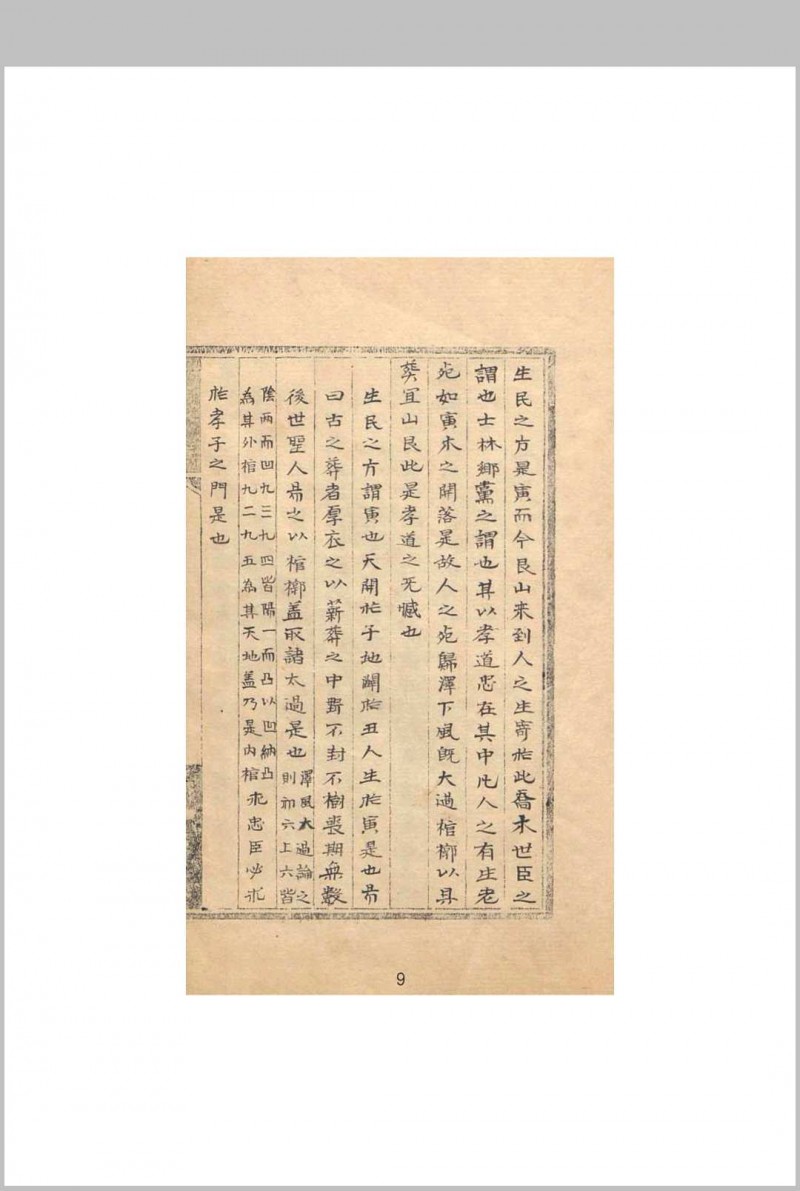 生民之方是寅而今艮山来到人之生寄於此喬木世臣之
謂也士林鄉黨之謂也其以孝道忠在其中凡人之有生老
死如寅木之開落是故人之死歸澤下風旣大過棺槨以具
葬宜山艮此是孝道之无憾也
生民之方謂寅也天開於子地闢於丑人生於寅是也易
曰古之葬者厚衣之以薪葬之中野不封不樹喪期無數
後世聖人易之以棺槨盖取諸太過是也澤風大過論之
則初六上六皆
陰兩而凹九三九四皆陽一而凸以凹納凸
為其外棺九二九五為其天地盖乃是内棺求忠臣必求
於孝子之門是也
9